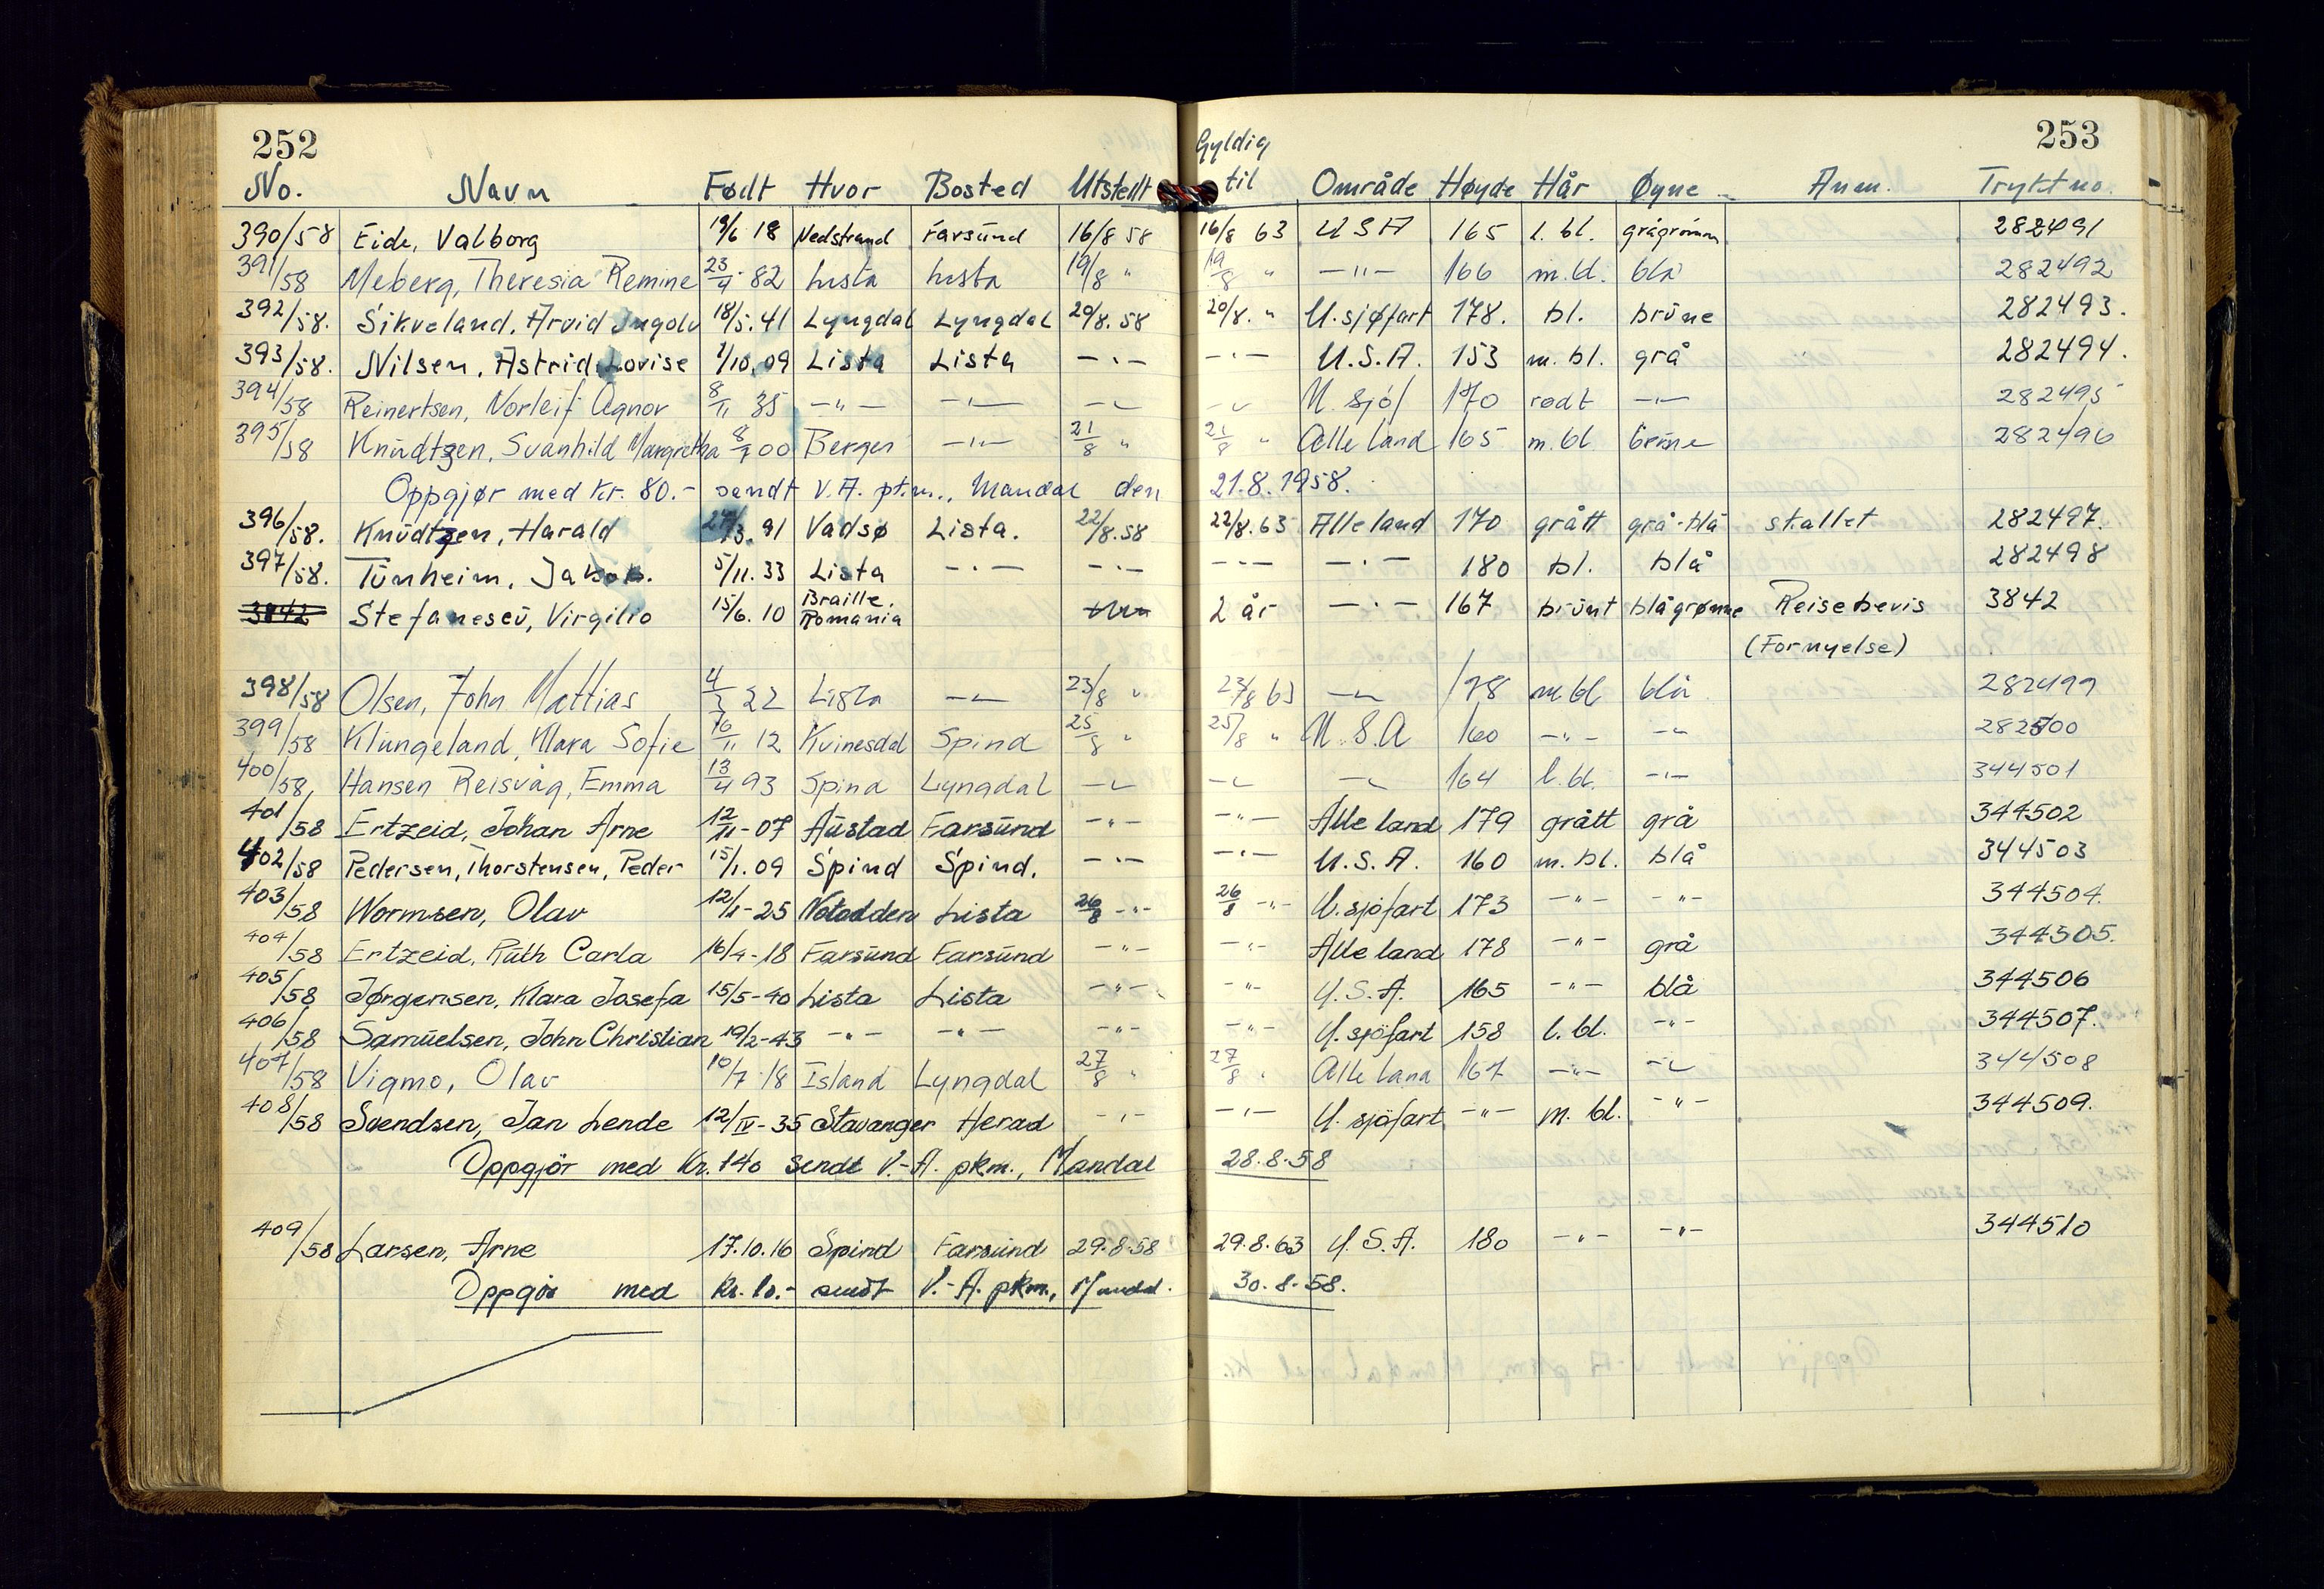 252
Gyldig
253
No. Navn Født Hvor Bosted Utstedt til Område Høyde Hår Øyne Anm. Trykt no.
390/58 Eide, Valborg 19/6 18 Nedstrand Farsund 16/8 58 16/8 63 USA 165 l. bl. grågrønn 282491
391/58 Meberg, Theresia Remine 23/4 82 Lista Lista 19/8 " 19/8 " -"- 166 m. bl. blå 282492
392/58. Sikveland, Arvid Ingolv 18/5. 41 Lyngdal Lyngdal 20/8. 58 20/8. " U.sjøfart 178. bl. brune 282493.
393/58. Nilsen, Astrid Lovise 1/10. 09 Lista Lista -"- -"- U.S.A. 153 m. bl. grå 282494.
394/58 Reinertsen, Norleif Agnor 8/11 35 -"- -"- -"- -"- U. sjöf 170 rødt -"- 282495
395/58 Knudtzen, Svanhild Margretha 00 Bergen -"- 21/8 " 21/8 " Alle land 165 m. bl brune 282496
Oppgjør med kr. 80.- sendt V.A. pt.m., Mandal den 21.8.1958.
396/58. Knudtzen, Harald 27/3. 91 Vadsø Lista. 22/8.58 22/8.63 Alle land 170 grått grå-blå stallet 282497.
397/58. Tunheim, Jakob. 5/11. 33 Lista -"- -"- -"- -"- 180 bl. blå 282498
3842 Stefanescu, Virgilio 15/6. 10 Braille. Romania 2 år -"- 167 brunt blågrønne Reisebevis 3842
(Fornyelse)
398/58 Olsen, John Mattias 22 Lista -"- 23/8 " 23/8 63 -"- 178 m. bl blå 282499
399/58 Klungeland, Klara Sofie 16/11 12 Kvinesdal Spind 25/8 " 25/8 " U.S.A 160 -"- -"- 282500
400/58, Hansen Reisvåg, Emma 13/4 93 Spind Lyngdal -"- -"- -"- 164 l. bl. -"- 344501
401/58 Ertzeid, Johan Arne 12/11-07 Austad Farsund -"- -"- Alle land 179 grått grå 344502
402/58 Pedersen, Thorstensen, Peder 15/1. 09 Spind Spind. -"- -"- U.S.A. 160 m. bl. blå 344503
403/58 Wormsen, Olav 12/1-25 Notodden Lista 26/8 -"- 26/8 -"- U.sjöfart 173 -"- -"- 344504.
404/58 Ertzeid, Ruth Carla 16/4-18 Farsund Farsund -"- -"- Alle land 178 -"- grå 344505.
405/58 Jørgensen, Klara Josefa 15/5-40 Lista Lista -"- -"- U.S.A. 165 -"- blå 344506
406/58 Samuelsen, John Christian 19/2-43 -"- -"- -"- -"- U.sjöfart 158 l. bl. -"- 344507.
407/58 Vigmo, Olav 10/7 18 Island Lyngdal 27/8 " 27/8 " Alle land 167 -"- -"- 344508
408/58 Svendsen, Jan Lende 12/IV-35 Stavanger Herad -"- -"- U.sjöfart -"- m. bl. -"- 344509.
Oppgjör med Kr. 140 sendt V.-A. pkm., Mandal 28.8.58
409/58 Larsen, Arne 17.10.16 Spind Farsund 29.8.58 29.8.63 U.S.A. 180 -"- -"- 344510
Oppgjör med Kr. 10.- sendt V.-A. pkm., Mandal. 30.8.58.